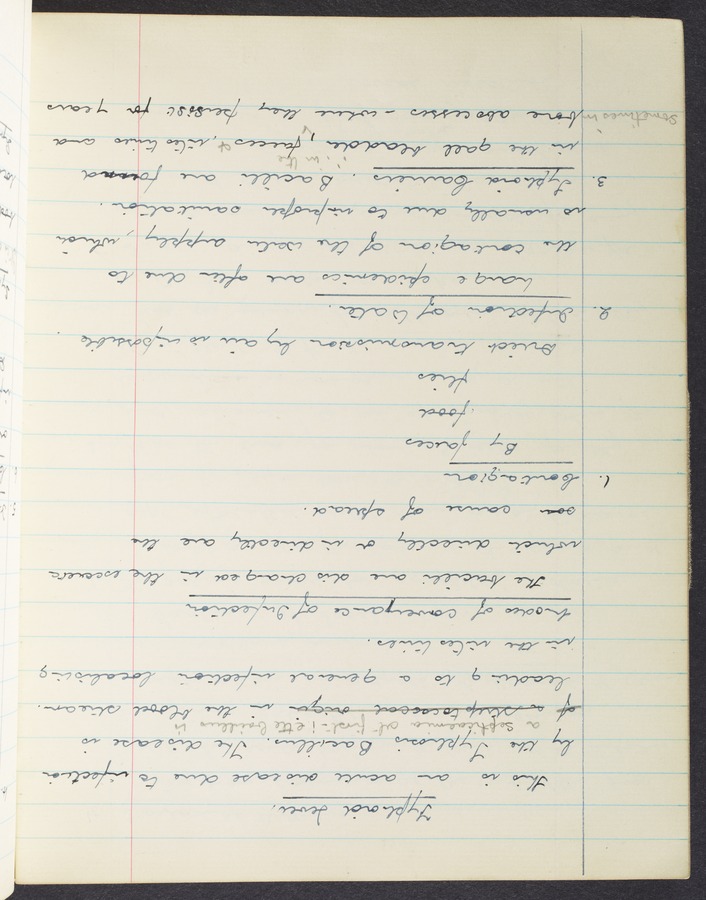 Typhoid Fever.
This is an acute disease due to infection
by the Typhosis Bacillus. The disease is
a septicaemia at first i.e. the bacillus is
of streptococcal origin in the blood stream.
leading to a general infection localising
in the intestines.
Modes of Conveyance of Infection
The bacilli are discharged in the excreta
which directly or indirectly are the
cause of spread.
1. Contagion
By faeces
food
flies
Direct transmission by air is impossible.
2. Infection of Water.
Large epidemics are often due to
the contagion of the water supply, which
is usually due to improper sanitation.
3. Typhoid Carriers. Bacilli are found
i.e. in the
in the gall bladder, faeces, & intestines and
sometimes in bone abscesses - where they persist for years